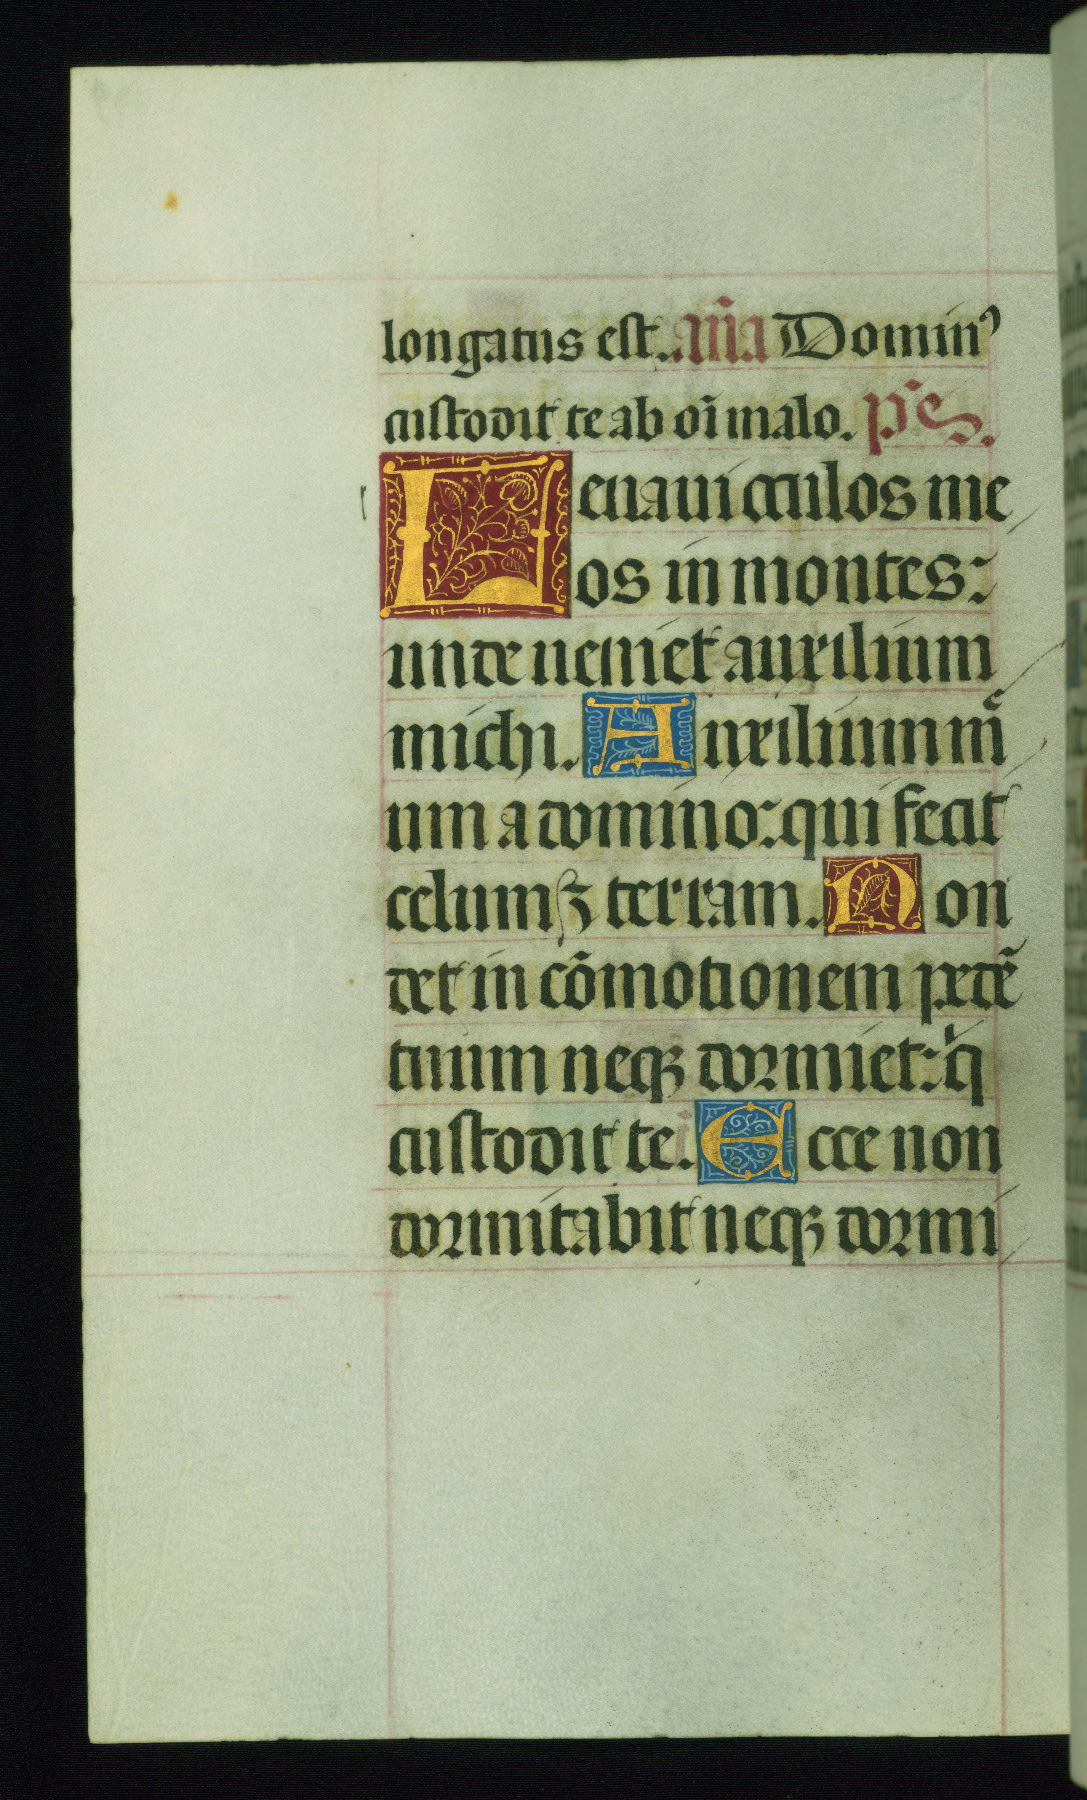 longatus est. an̄a Dominꝰ
custodit te ab oī malo. ps̄.
Leuaui occulos me
os in montes:
unde ueniet auxilium
michi. Auxilium m̄
um a domino: qui fecit
celum ⁊ terram. Non
det in cōmotionem pedē
tuum neqꝫ dormiet: q̇
custodit te. Ecce non
dormitabit neqꝫ dormi